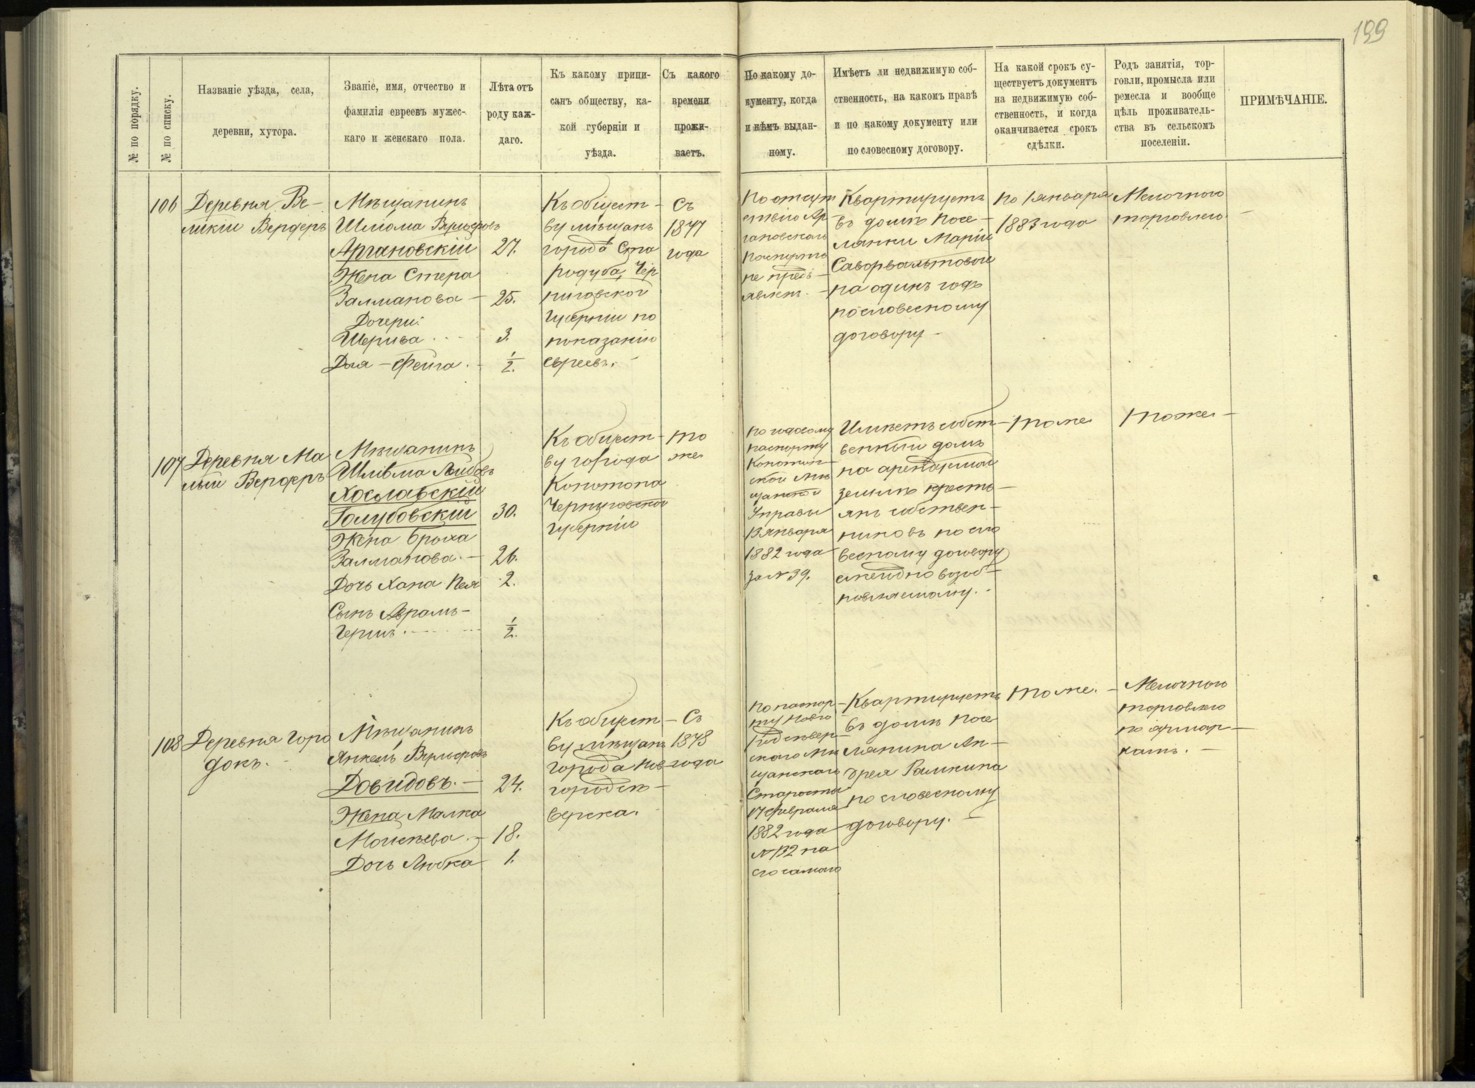 199
№ по порядку.
№ по списку.
Названіе уѣзда, села,
деревни, хутора.
Званіе, имя, отчество и
фамилія евреевъ мужес-
каго и женскаго пола.
Лѣта отъ
роду каж-
даго.
Къ какому припи-
санъ обществу, ка-
кой губерніи и
уѣзда.
Съ какого
времени
прожи-
ваетъ.
По какому до-
кументу, когда
и кѣмъ выдан-
ному.
Имѣетъ ли недвижимую соб-
ственность, на какомъ правѣ
и по какому документу или
по словесному договору.
На какой срокъ су-
ществуетъ документъ
на недвижимую соб-
ственность, и когда
оканчивается срокъ
сдѣлки.
Родъ занятія, тор-
говли, промысла или
ремесла и вообще
цѣль проживатель-
ства въ сельскомъ
поселеніи.
ПРИМѢЧАНІЕ.
106
Деревня Ве-
ликій Вердеръ
Мѣщанинъ
Шліома
Аргановскій
Жена Стера
Залманова —
Дочери:
Шерива
Двя - Фейга
27.
25.
3.
1/2.
Къ общест-
ву мѣщанъ
города Ста
родуба, Чер
ниговской
Губерніи по
показанію
евреевъ. -
Съ
1877
года
По отсут
ствію Ар
гановскаго
паспорта
не предъ-
являт. -
Квартируетъ
въ домѣ посе-
лянки Маріи
на одинъ годъ
по словесному
договору -
По 1 января
1883 года
Мелочного
торговлею -
107
Деревня Ма
лый Вердеръ
Мѣщанинъ
Шліома Лейбовъ
Хославскій
Голубовскій
Жена Броха
Залманова. -
Дочь Хана Песя
Сынъ Абрамъ-
Гершъ
30.
26.
2.
1/2.
Къ общест-
ву города
Конотопа
Черниговской
Губерніи
То
же
по годовому
паспорту
Конотоп-
ской Мѣ
щанской
Управы
13 января
1882 года
за № 39.
Имѣетъ собст-
венный домъ
на арендуемой
землѣ кресть-
янъ собствен-
никовъ по сло
весному договору
ежегодно возоб-
новляемому. -
тоже
тоже -
108
Деревня Горо
докъ. -
Мѣщанинъ
Янкель
Довидовъ. -
Жена Малка
Мойсѣева. -
Дочь Любка
24.
18.
1.
Къ общест-
ву мѣщанъ
города Нов
городсѣ-
верска.
Съ
1878
года
По паспор
ту Ново
Городсѣвер-
скаго Мѣ
щанскаго
Старосты
17 февраля
1882 года
№ 132 на
его самого
Квартируетъ
въ домѣ посе
лянина Ан-
дрея Рамкина
по словесному
договору. -
тоже. -
Мелочного
торговлею
по ярмар-
камъ. -